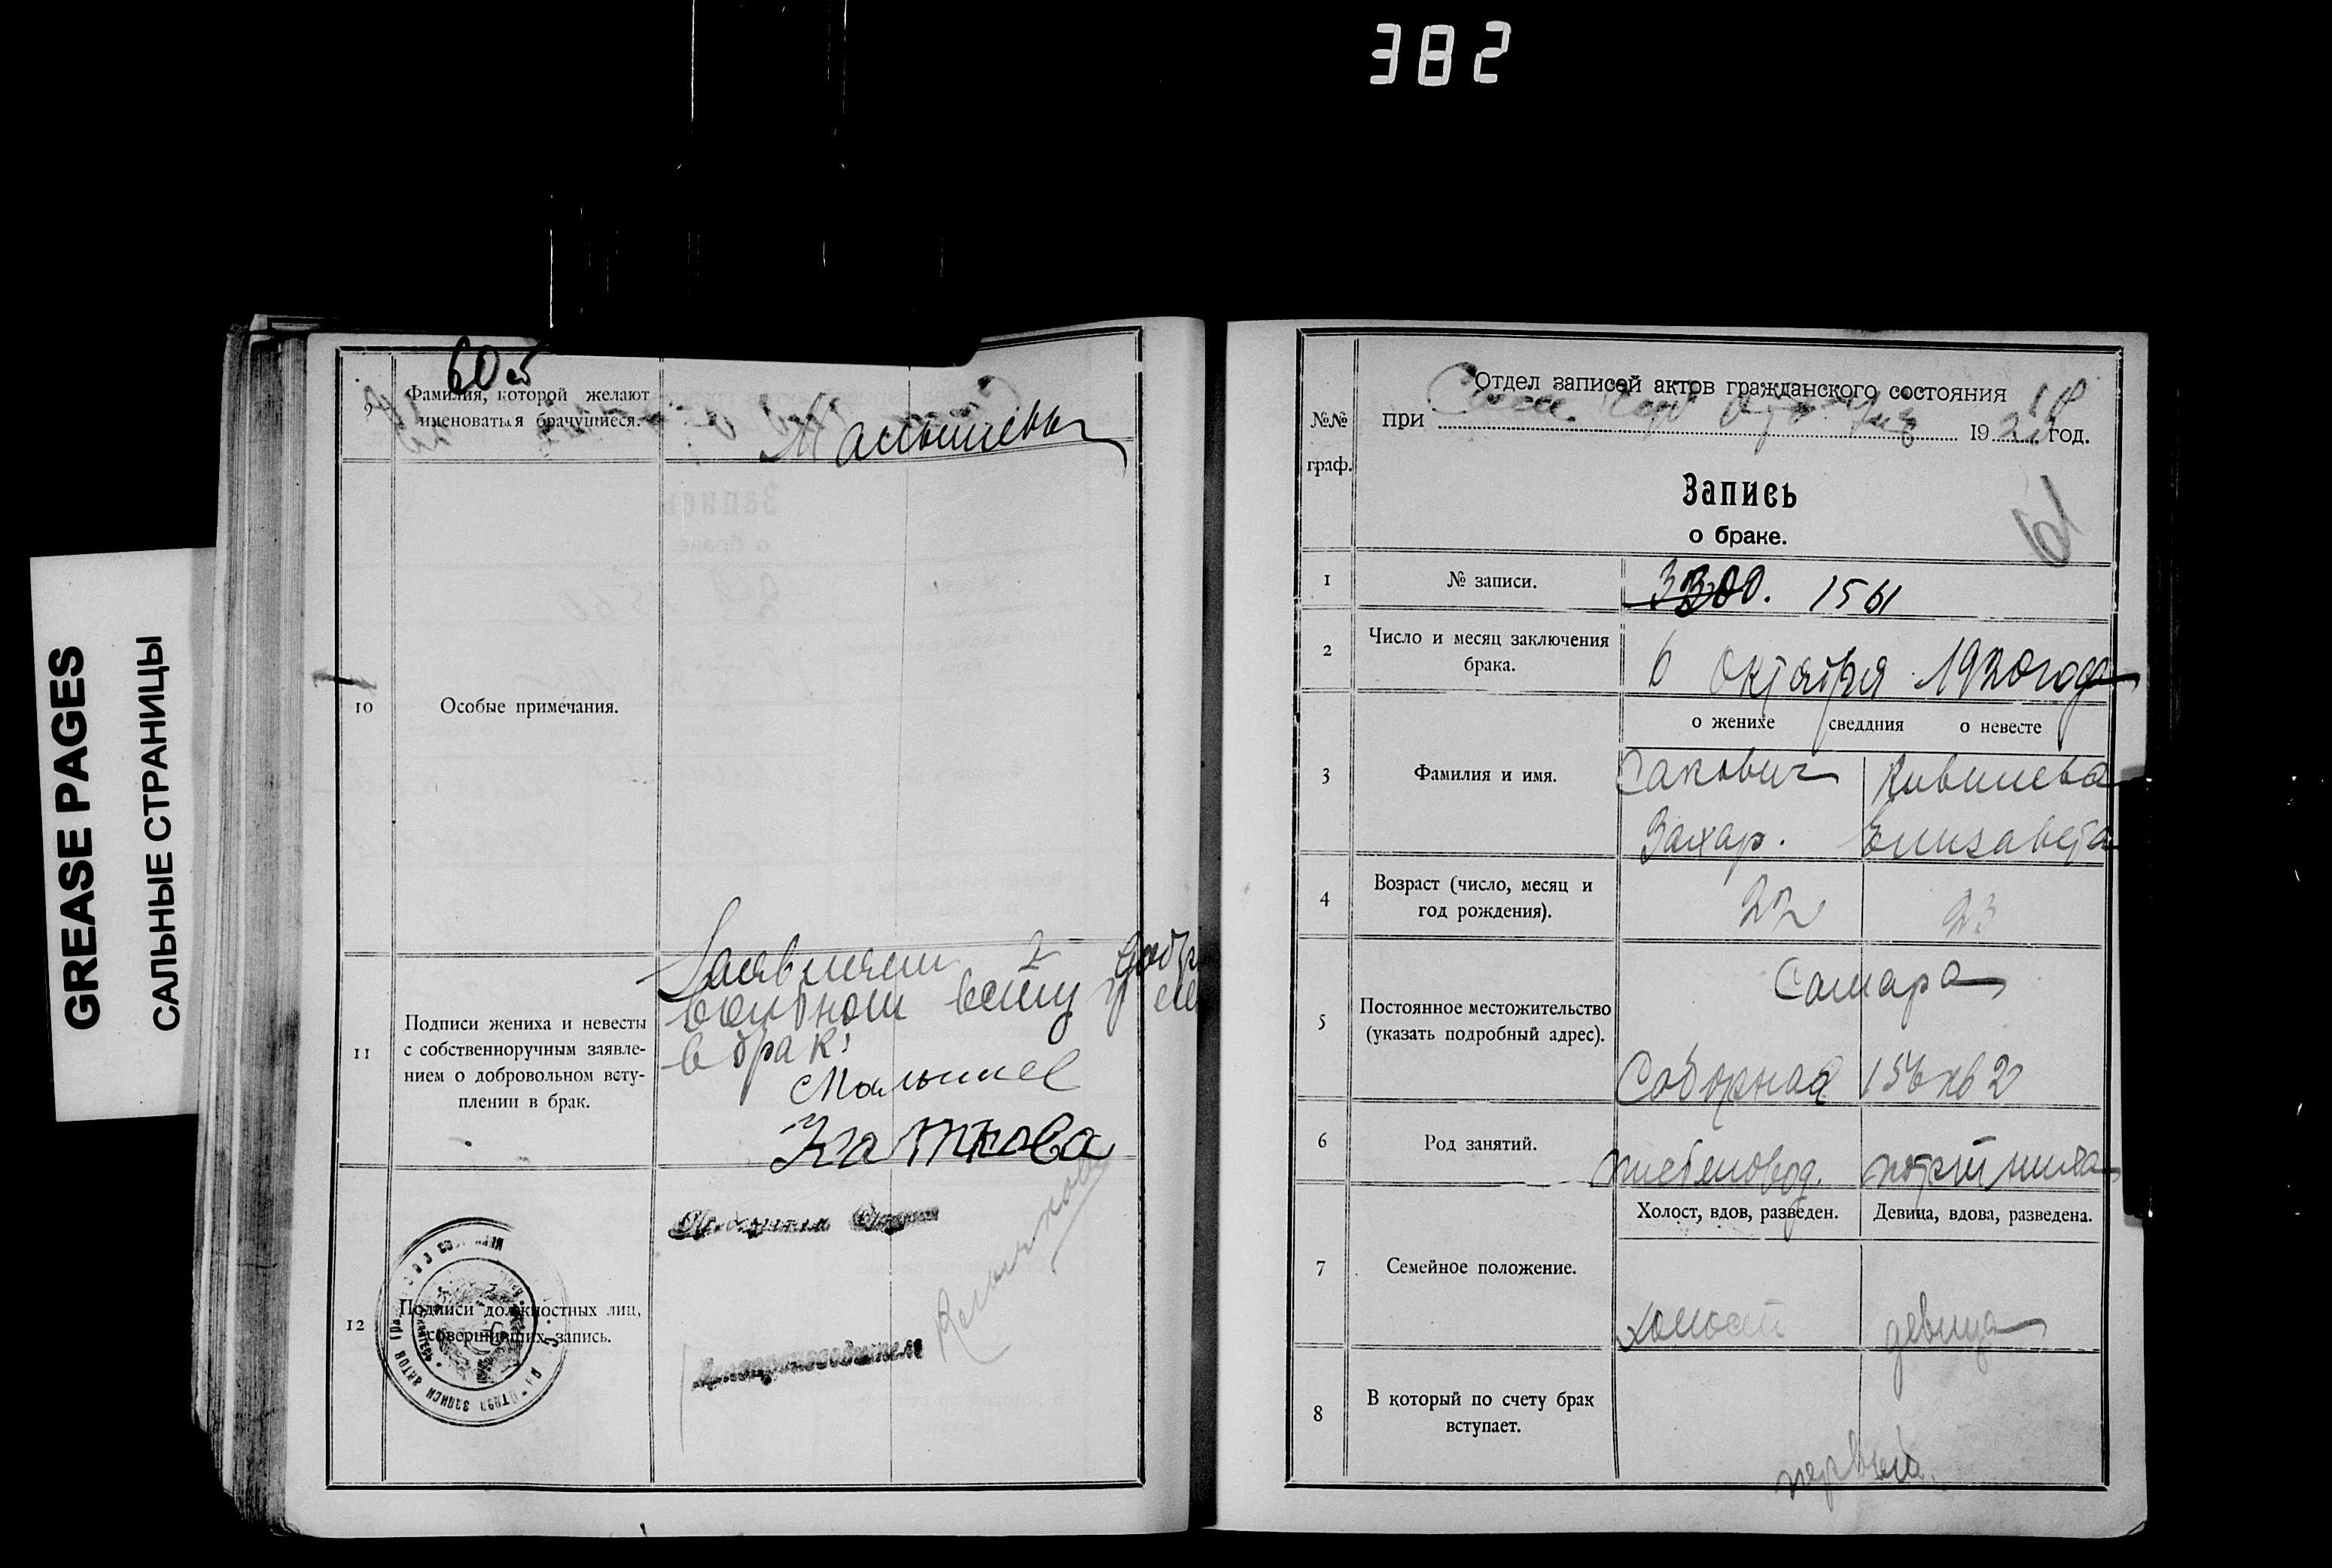 382
GREASE PAGES
САЛЬНЫЕ СТРАНИЦЫ
60 об
9
Фамилия, которой желают
именоваться брачущиеся.
Малышевы
10
Особые примечания.
11
Подписи жениха и невесты
с собственноручным заявле-
нием о добровольном всту-
плении в брак.
Заявляем о добр
вольном всту
в брак:
Малышев
12
Подписи должностных лиц,
совершивших запись.
№№
граф.
Отдел записей актов гражданского состояния
при
19 20 год.
61
Запись
о браке.
1
№ записи.
3300. 1561
2
Число и месяц заключения
брака.
6 октября 1920 года
о женихе сведдния о невесте
3
Фамилия и имя.
Сакович
Захар. Елизавета
4
Возраст (число, месяц и
год рождения).
22 23
5
Постоянное местожительство
(указать подробный адрес).
Самара
Соборная кв 2
6
Род занятий.
портниха
Холост, вдов, разведен. Девица, вдова, разведена.
7
Семейное положение.
холост девица
8
В который по счету брак
вступает.
первый.